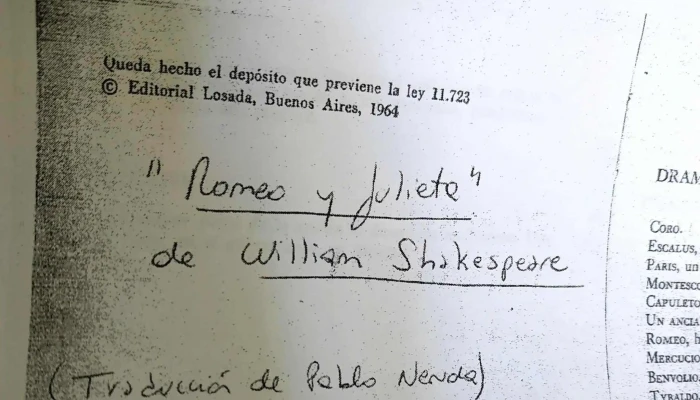 Queda hecho el depósito que previene la ley 11.723
© Editorial Losada, Buenos Aires, 1964
"Romeo y Julieta"
de William Shakespeare
(Traducción de Pablo Neruda)
DRAM
CORO.
ESCALUS,
PARIS, un
MONTESCO
CAPULETO
UN ANCIA
ROMEO, h
MERCUCIO
BENVOLIO.
TYBALDO